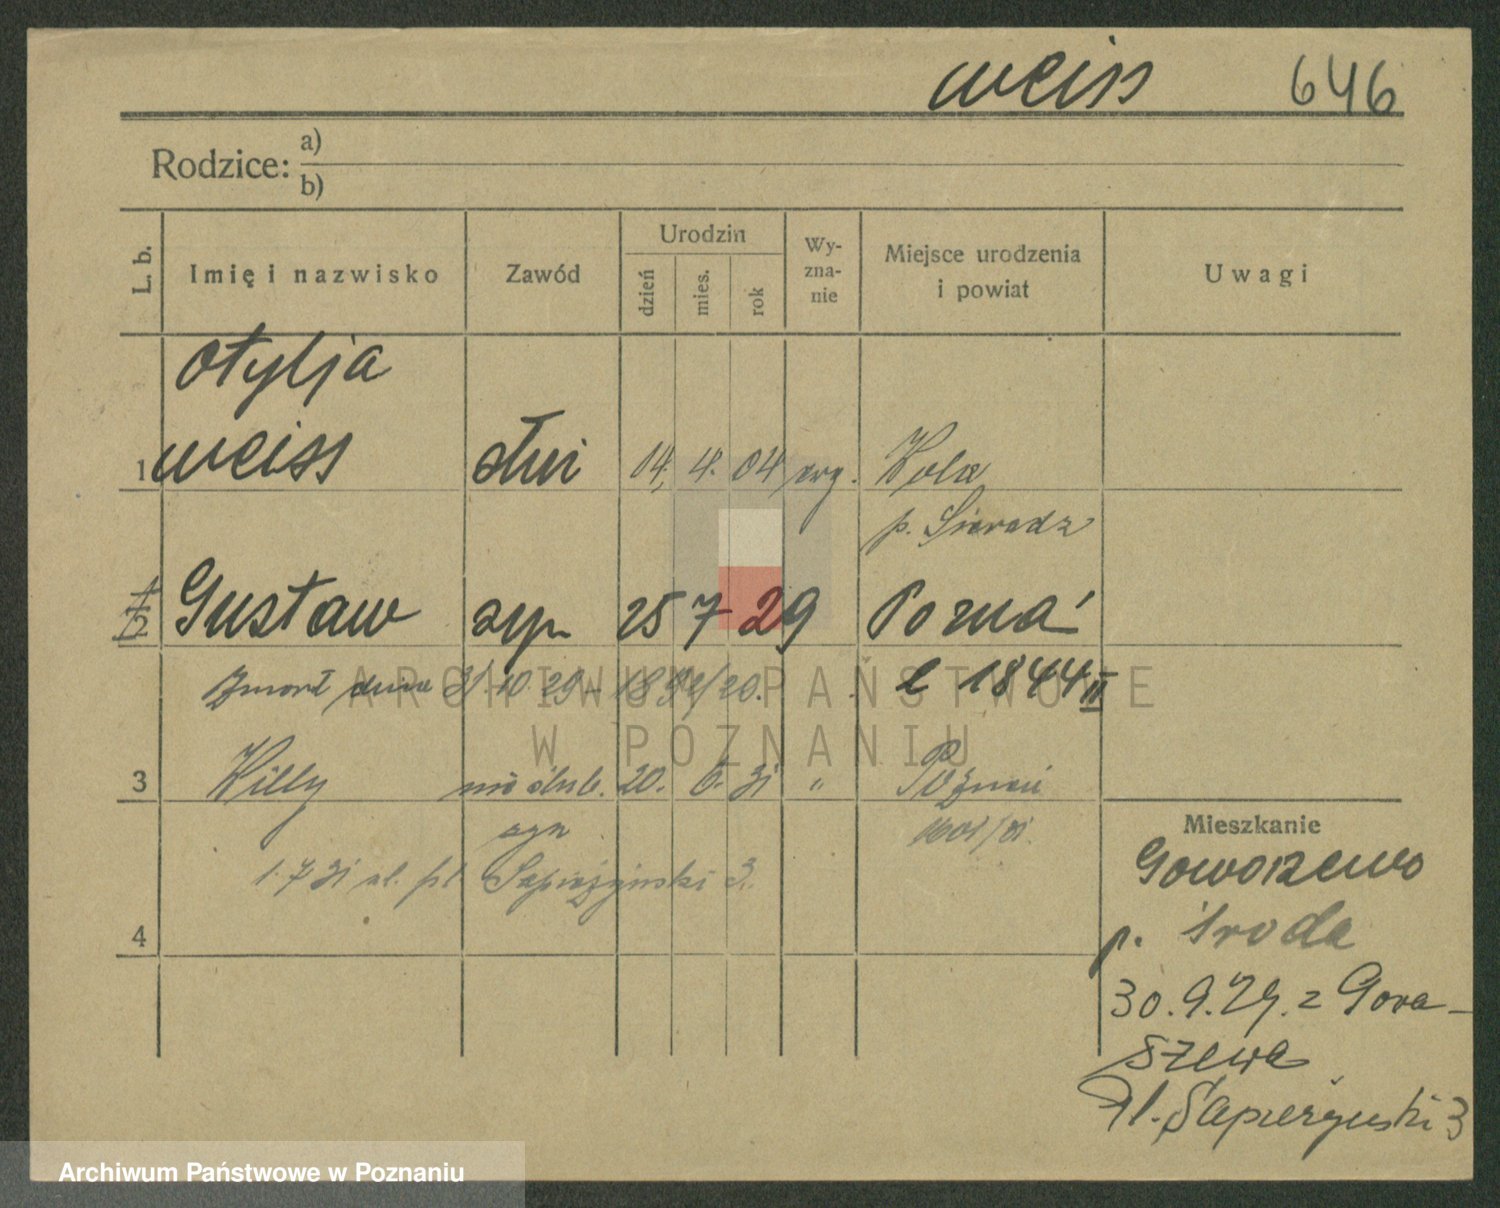 Weiss 646
Rodzice: a)
b)
L. b. Imię i nazwisko Zawód Urodzin dzień mies. rok Wy-zna-nie Miejsce urodzenia i powiat Uwagi
Otylja
1 Weiss 04. 4. 04 ewg. Wola
p. Sieradz
2 Gustaw syn 25 7 29 Pozna
Zmarł dnia 31.10.29 l 1844 II
3 Willy nieślub. 20. 6. 31 " Poznań
syn
1.7.31 ul. pl Sapieżyński 3.
4
Mieszkanie
Goworzewo
p. Środa
30.9.29. z Gora-
szewa
Pl. Sapieżyński 3
ARCHIWUM PAŃSTWOWE
W POZNANIU
Archiwum Państwowe w Poznaniu